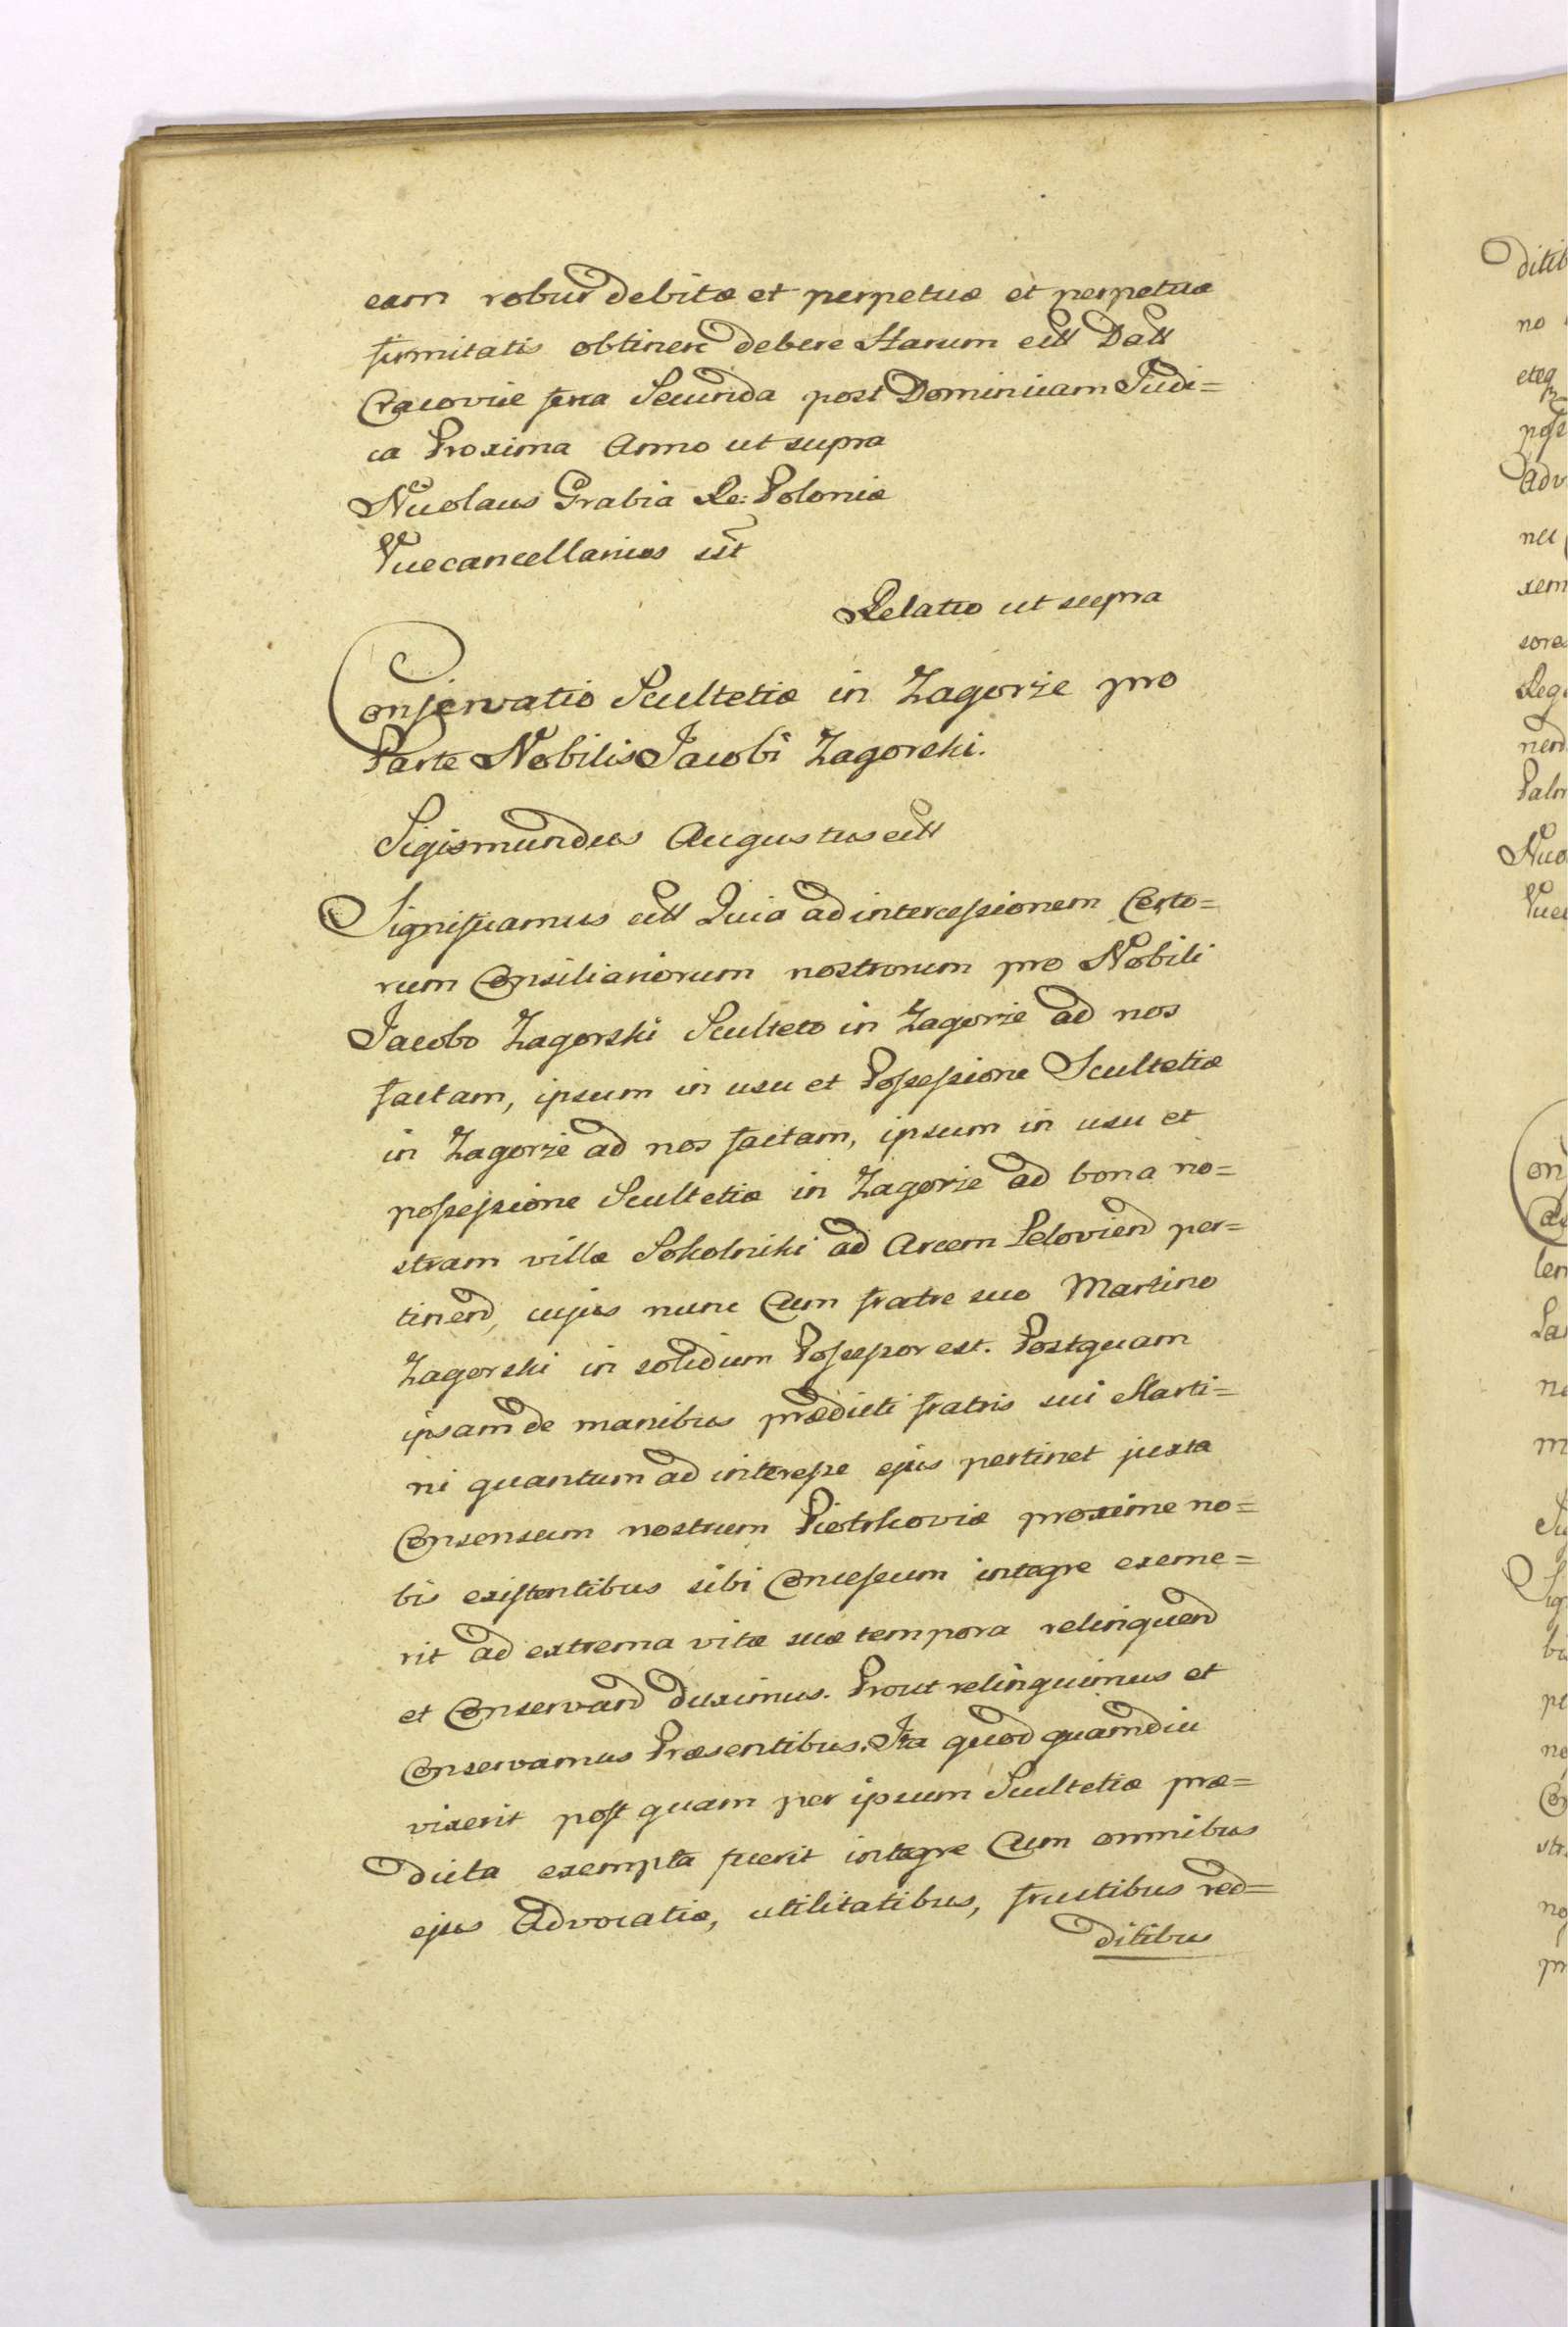 eam robur debitæ et perpetuæ et perpetuæ
firmitatis obtinere debere Harum ett Datt
Cracoviæ feria Secunda post Dominicam Judi=
ca Proxima Anno ut supra
Nicolaus Grabia Re: Poloniæ
Vicecancellarius sst
Relatio ut supra
Conservatio Scultetiæ in Zagorze pro
Parte Nobilis Jacobi Zagorski.
Sigismundus Augustus ett
Significamus ett Quia ad intercessionem Certo=
rum Consiliariorum nostrorum pro Nobili
Jacobo Zagorski Sculteto in Zagorze ad nos
factam, ipsum in usu et Possessione Scultetiæ
in Zagorze ad nos factam, ipsum in usu et
possessione Scultetiæ in Zagorze ad bona no=
stram villæ Sokolniki ad Arcem pertinend per=
tinend, cujus nunc Cum fratre suo Martino
Zagorski in solidum Possessor est. Postquam
ipsam de manibus prædicti fratris sui Marti=
ni quantum ad interesse ejus pertinet juxta
Consensum nostrum Piotrkoviæ proxime no=
bis existentibus sibi Concessum integre exeme=
rit ad extrema vitæ suæ tempora relinquend
et Conservand duximus. Prout relinquimus et
Conservamus Præsentibus. Ita quod quamdiu
vixerit post quam per ipsum Scultetiæ præ=
dicta exempta fuerit integre Cum omnibus
ejus Advocatiæ, utilitatibus, fructibus red=
ditibus